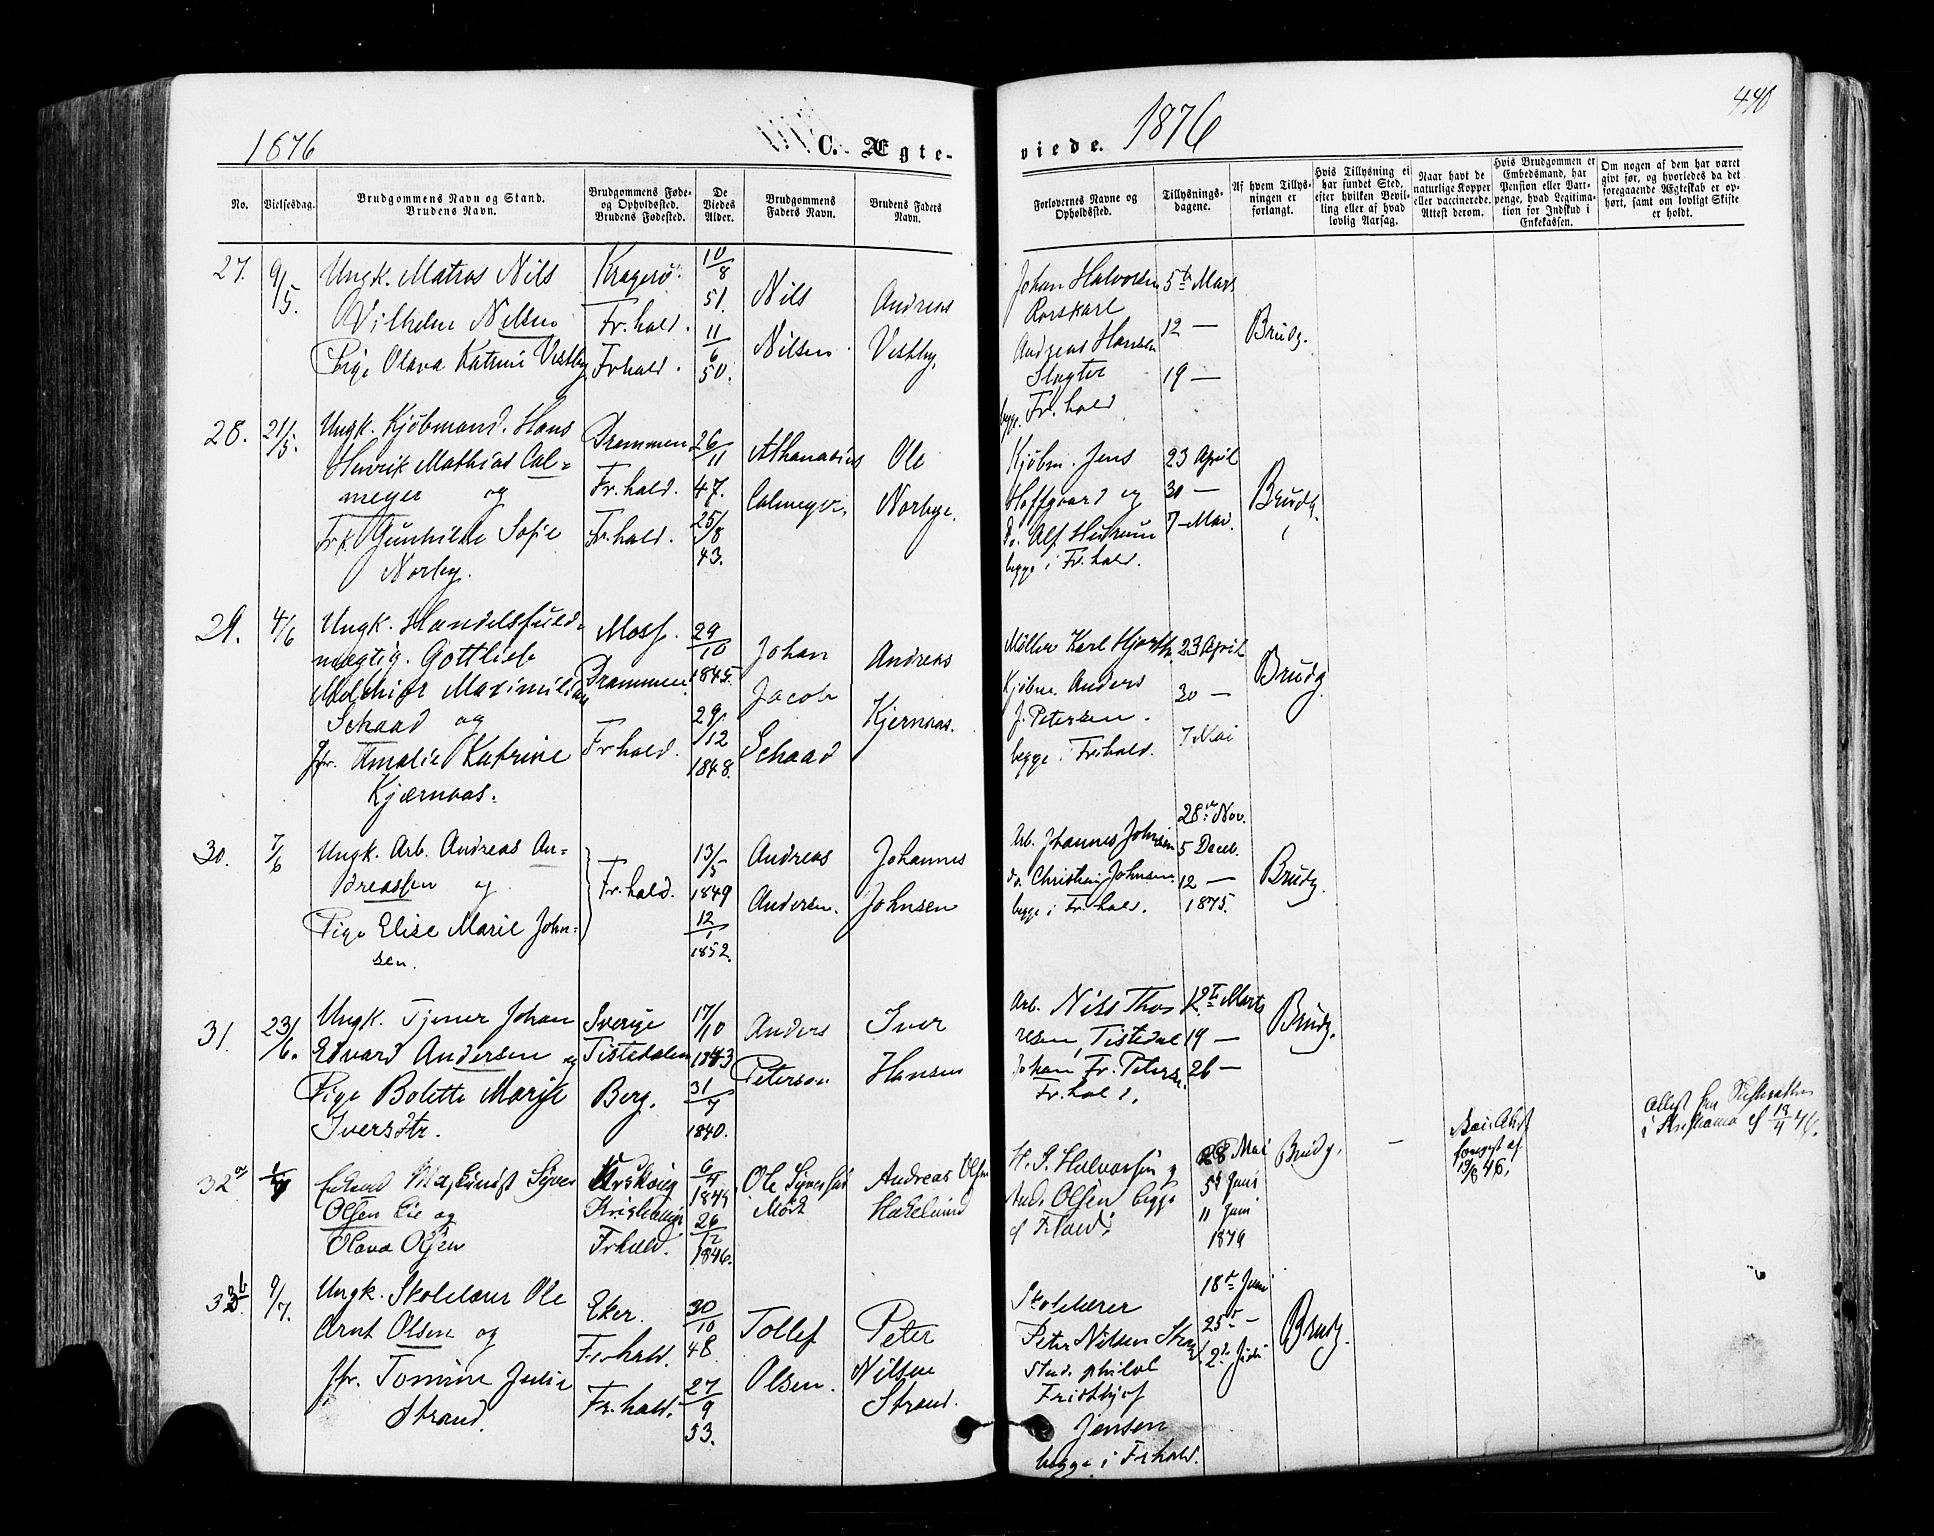 1876
C. Ægte-
viede.
1876
440
No.
Vielsesdag.
Brudgommens Navn og Stand.
Brudens Navn.
Brudgommens Føde-
og Opholdssted.
Brudens Fødested.
De
Viedes
Alder.
Brudgommens
Faders Navn.
Brudens Faders
Navn.
Forlovernes Navne og
Opholdssted.
Tillysnings-
dagene.
Af hvem Tillys-
ningen er
forlangt.
Hvis Tillysning ei
har fundet Sted,
efter hvilken Bevil-
ling eller af hvad
lovlig Aarsag.
Naar havt de
naturlige Kopper
eller vaccinerede.
Attest derom.
Hvis Brudgommen er
Embedsmand, har
Pension eller Vart-
penge, hvad Legitima-
tion for Indskud i
Enkekassen.
Om nogen af dem har været
gift før, og hvorledes da det
foregaaende Ægteskab er op-
hørt, samt om lovligt Skifte
er holdt.
27.
9/5.
Ungk. Matros Nils
Vilhelm Nilsen
Pige Olava Katrine Vestby
Kragerø.
Fr.hald.
Frhald.
10/8
51.
11/6
50.
Nils
Nilsen
Andreas
Vestby.
Johan Halvorsen
Andreas Hansen
Slagter
begge Fr.hald
5te Mars
12 —
19 —
Brudg.
28.
21/5.
Ungk. Kjøbmand. Hans
Henrik Mathias Cal-
meyer og
Frk. Gunhilde Sofie
Norby.
Drammen
Fr.hald.
Fr.hald.
26/11
47.
25/8
43.
Athanasius
Calmeyer.
Ole
Norbye.
Kjøbm. Jens
Hoffgaard og
Do. Alf Huitrum
begge i Fr.hald.
23 April
30 —
7 Mai.
Brudg.
29.
4/6
Ungk. Handelsfuld-
mægtig. Gottlieb
Melchior Maximilian
Schaad og
Jfr. Amalie Katrine
Kjærnaas.
Moss.
Drammen.
Frhald.
29/10
1845.
29/12
1848.
Johan
Jacob
Schaad
Andreas
Kjernaas.
Møller Karl Hjorth.
Kjøbm. Anders
J. Petersen.
begge i Frhald.
23 April
30 —
7 Mai
Brudg.
30.
7/6
Ungk. Arb. Andreas An-
dreassen og
Pige Elise Marie John-
sen.
Fr.hald.
13/5
1849
12/1
1852.
Andreas
Andersen.
Johannes
Johnsen
Arb. Johannes Johnsen
do. Christian Johnsen.
begge i Fr.hald.
28de Nov.
5 Decb.
12 —
1875.
Brudg.
31.
23/6.
Ungk. Tjener Johan
Edvard Andersen og
Pige Bolette Marie
Iversdtr.
Sverige
Tistedalen
Berg.
17/10
1843
31/7
1840.
Anders
Peterson
Iver
Hansen
Arb. Nils Tho-
resen, Tistedal
Johan Fr. Peters.
Fr.hald.
12te Marts
19 —
26 —
Brudg.
32a
Enkemd Maskinist Syver
Olsen Lie og
Olava Olsen
Frhald.
26/12
1846.
Ole Syversen
Andreas Olsen
H. S. Halvorsen og
And. Olsen begge
af Frhald.
28 Mai
5t Juni
11 Juni
1879
Brudg.
—
Attest fra Skifteretten
i Kristiania
32b
9/7.
Ungk. Skolelærer Ole
Arnt Olsen og
Jfr. Tomine Julie
Strand.
Eker.
Frhald.
Fr.hald.
30/10
48.
27/9
53.
Tollef
Olsen.
Peter
Nilsen
Strand.
Skolelærer
Peter Nilsen Strand
Stud. philol
Fridthjof
Jensen
begge i Frhald.
18de Juni
25de —
2de Juli
Brudg.